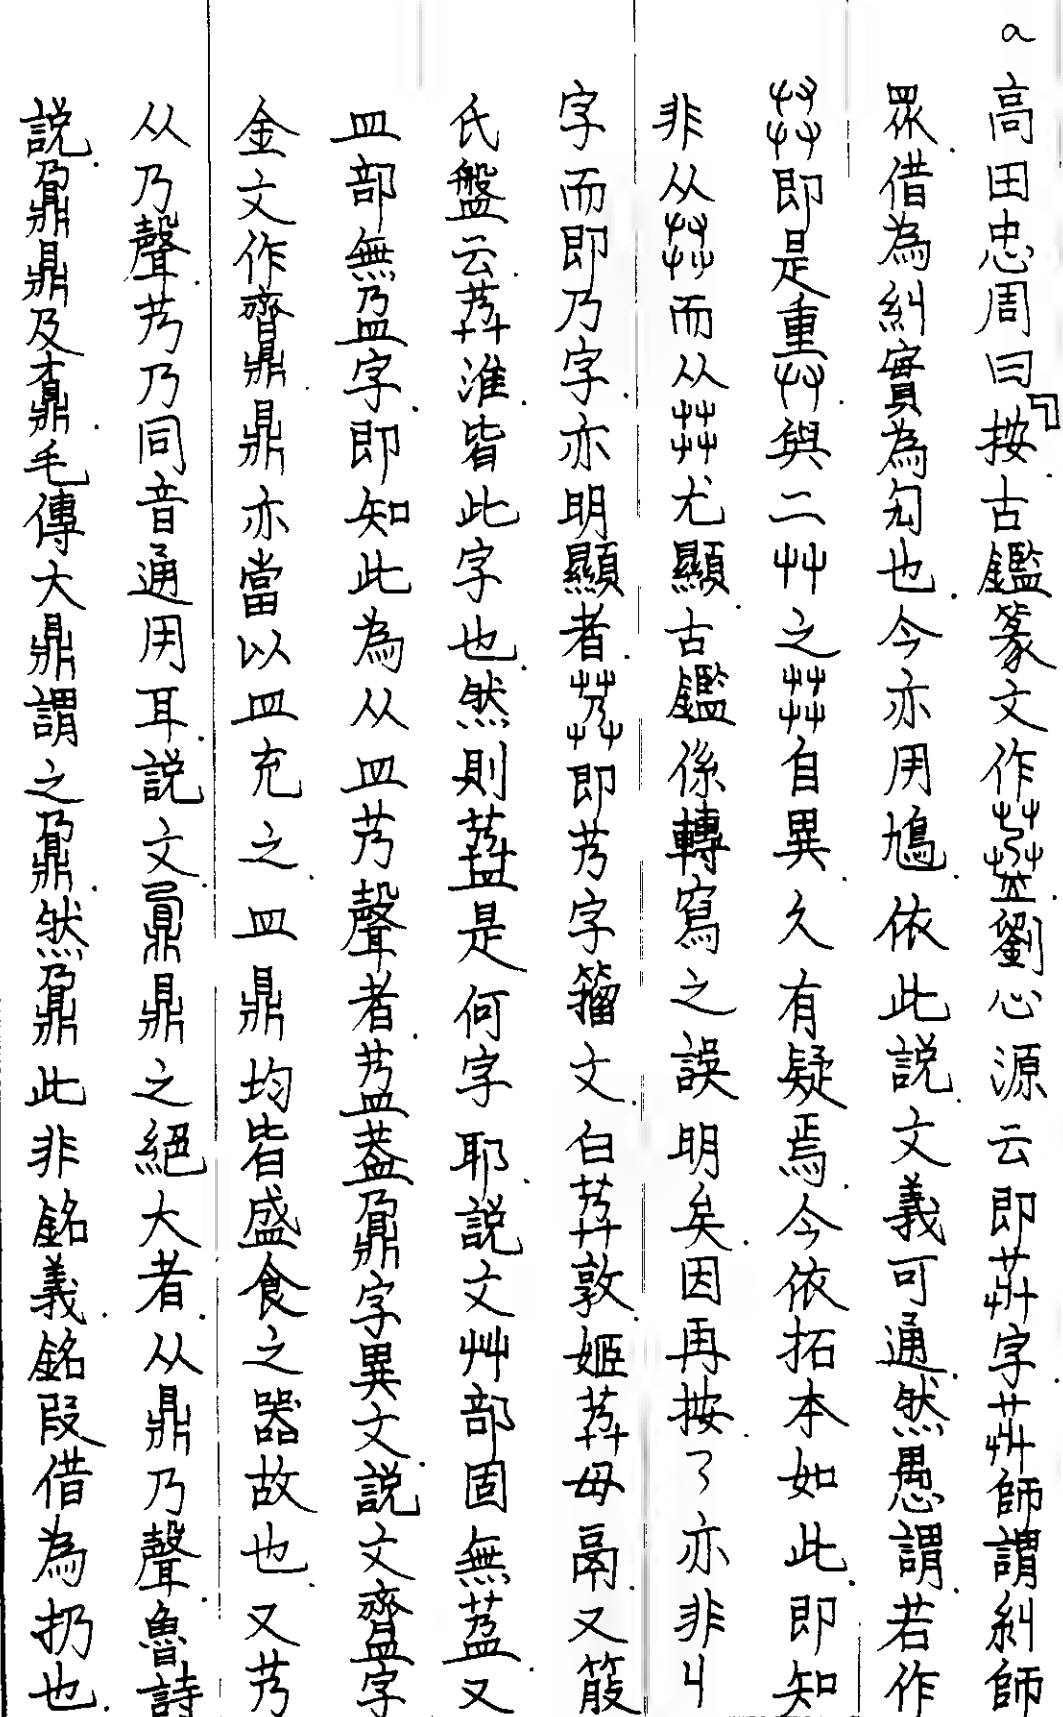 a
高田忠周曰「按古鑑篆文作．劉心源云即字．師謂糾師
眾．借為糾實為勼也．今亦用鳩．依此說．文義可通．然愚謂．若作
茻即是重艸．與二艸之茻自異．久有疑焉．今依拓本如此．即知
非从茻而从茻尤顯．古鑑係轉寫之誤明矣．因再按了亦非丩
字而即乃字．亦明顯者．即艿字籀文．白敦．姬母鬲．又簋
氏盤云．淮．皆此字也．然則是何字耶．說文艸部固無．又
皿部無字．即知此為从皿艿聲者．蓋鼐字異文．說文齍字
金文作．鼎亦當以皿充之．皿鼎均皆盛食之器故也．又艿
从乃聲．艿乃同音通用耳．說文．鼐鼎之絕大者．从鼎乃聲．魯詩
說．鼐鼎及鼒．毛傳大鼎謂之鼐．然鼐此非銘義．銘叚借為扔也．